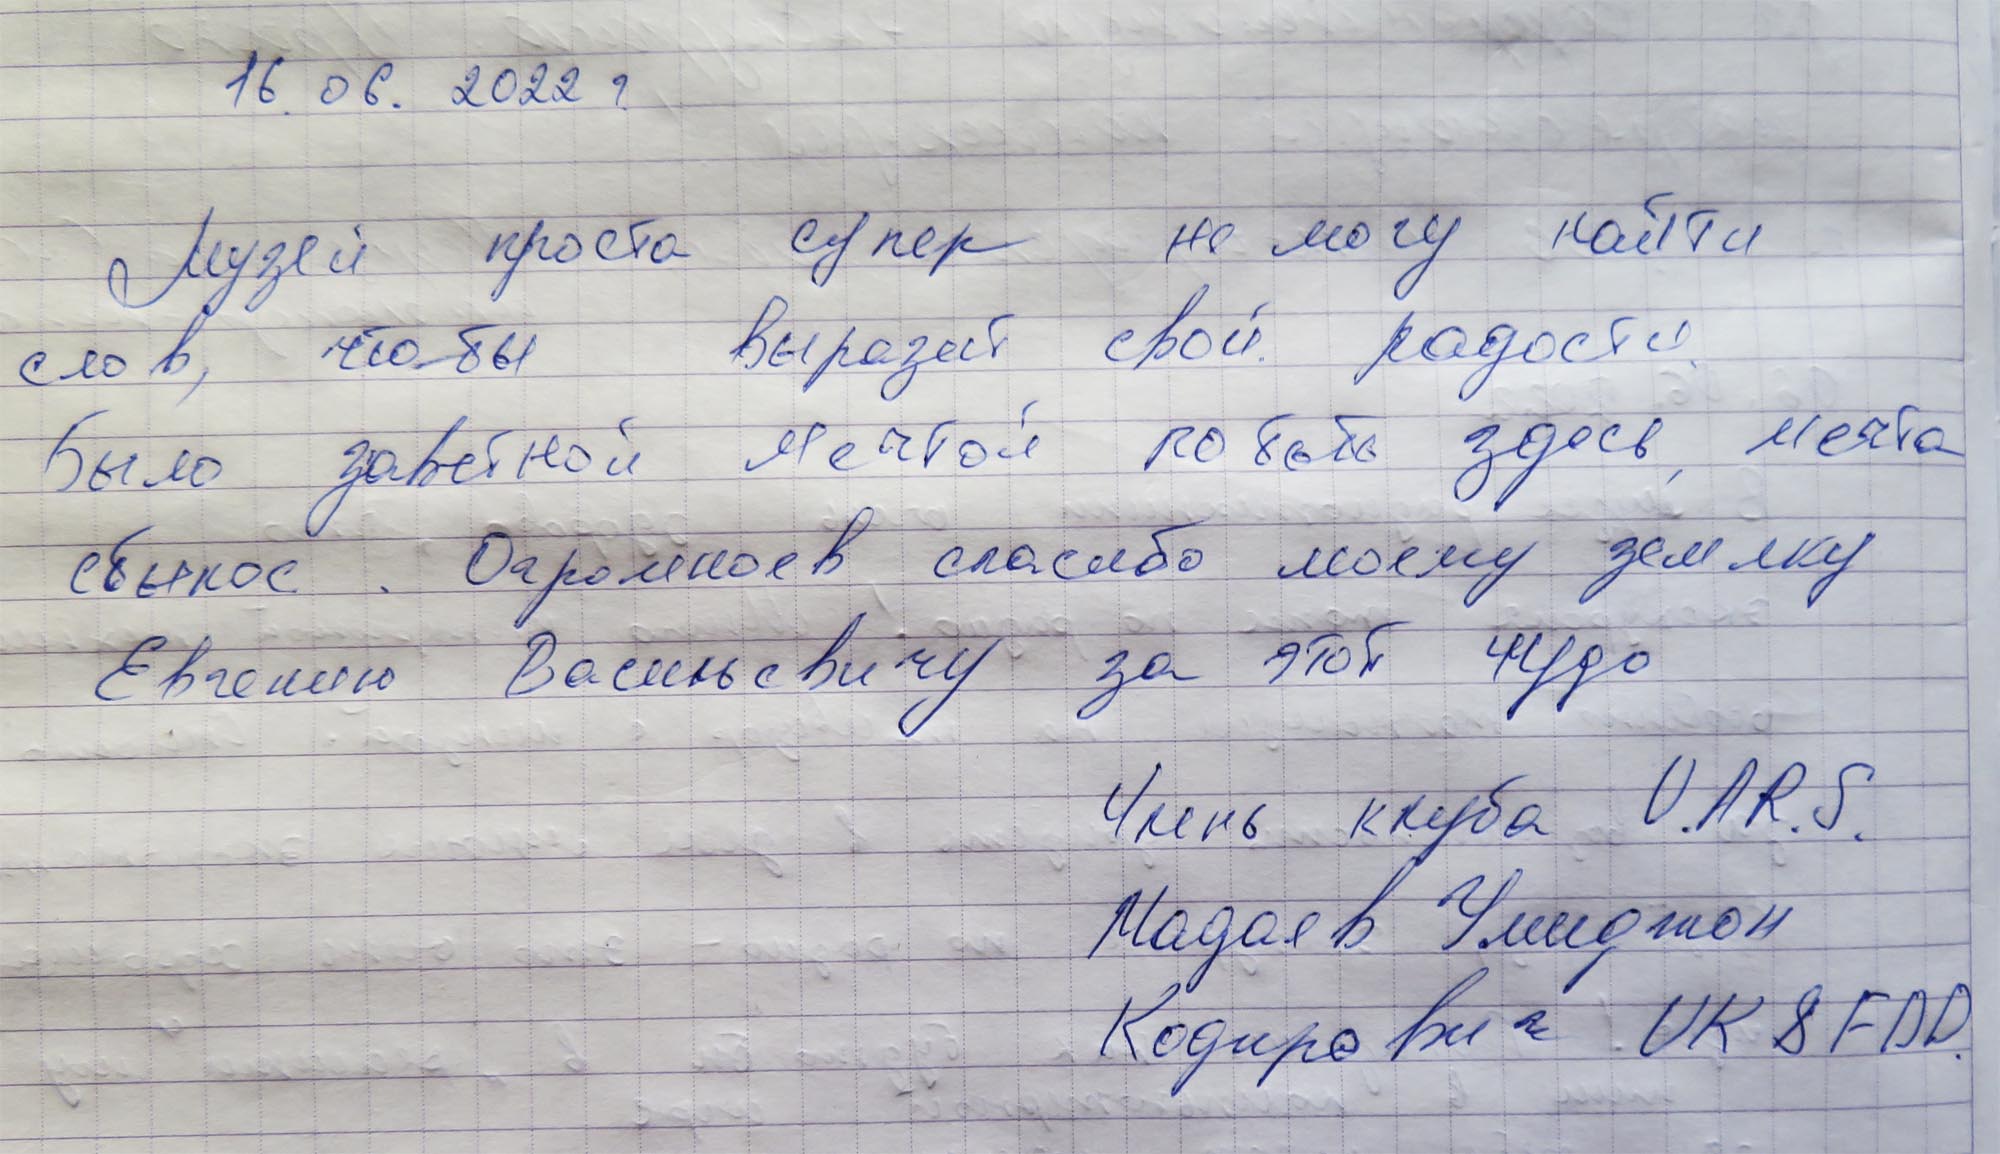 16.06.2022 г
Музей проста супер не могу найти
слов, чтобы выразит свой радости.
Было заветной мечтой побыть здесь, мечта
сбылос. Огромноев спасибо моему земляку
Евгению Васильевичу за этот чудо
Члень клуба U.A.R.S.
Мадаев Умиджон
Кодирович UK8FDD.